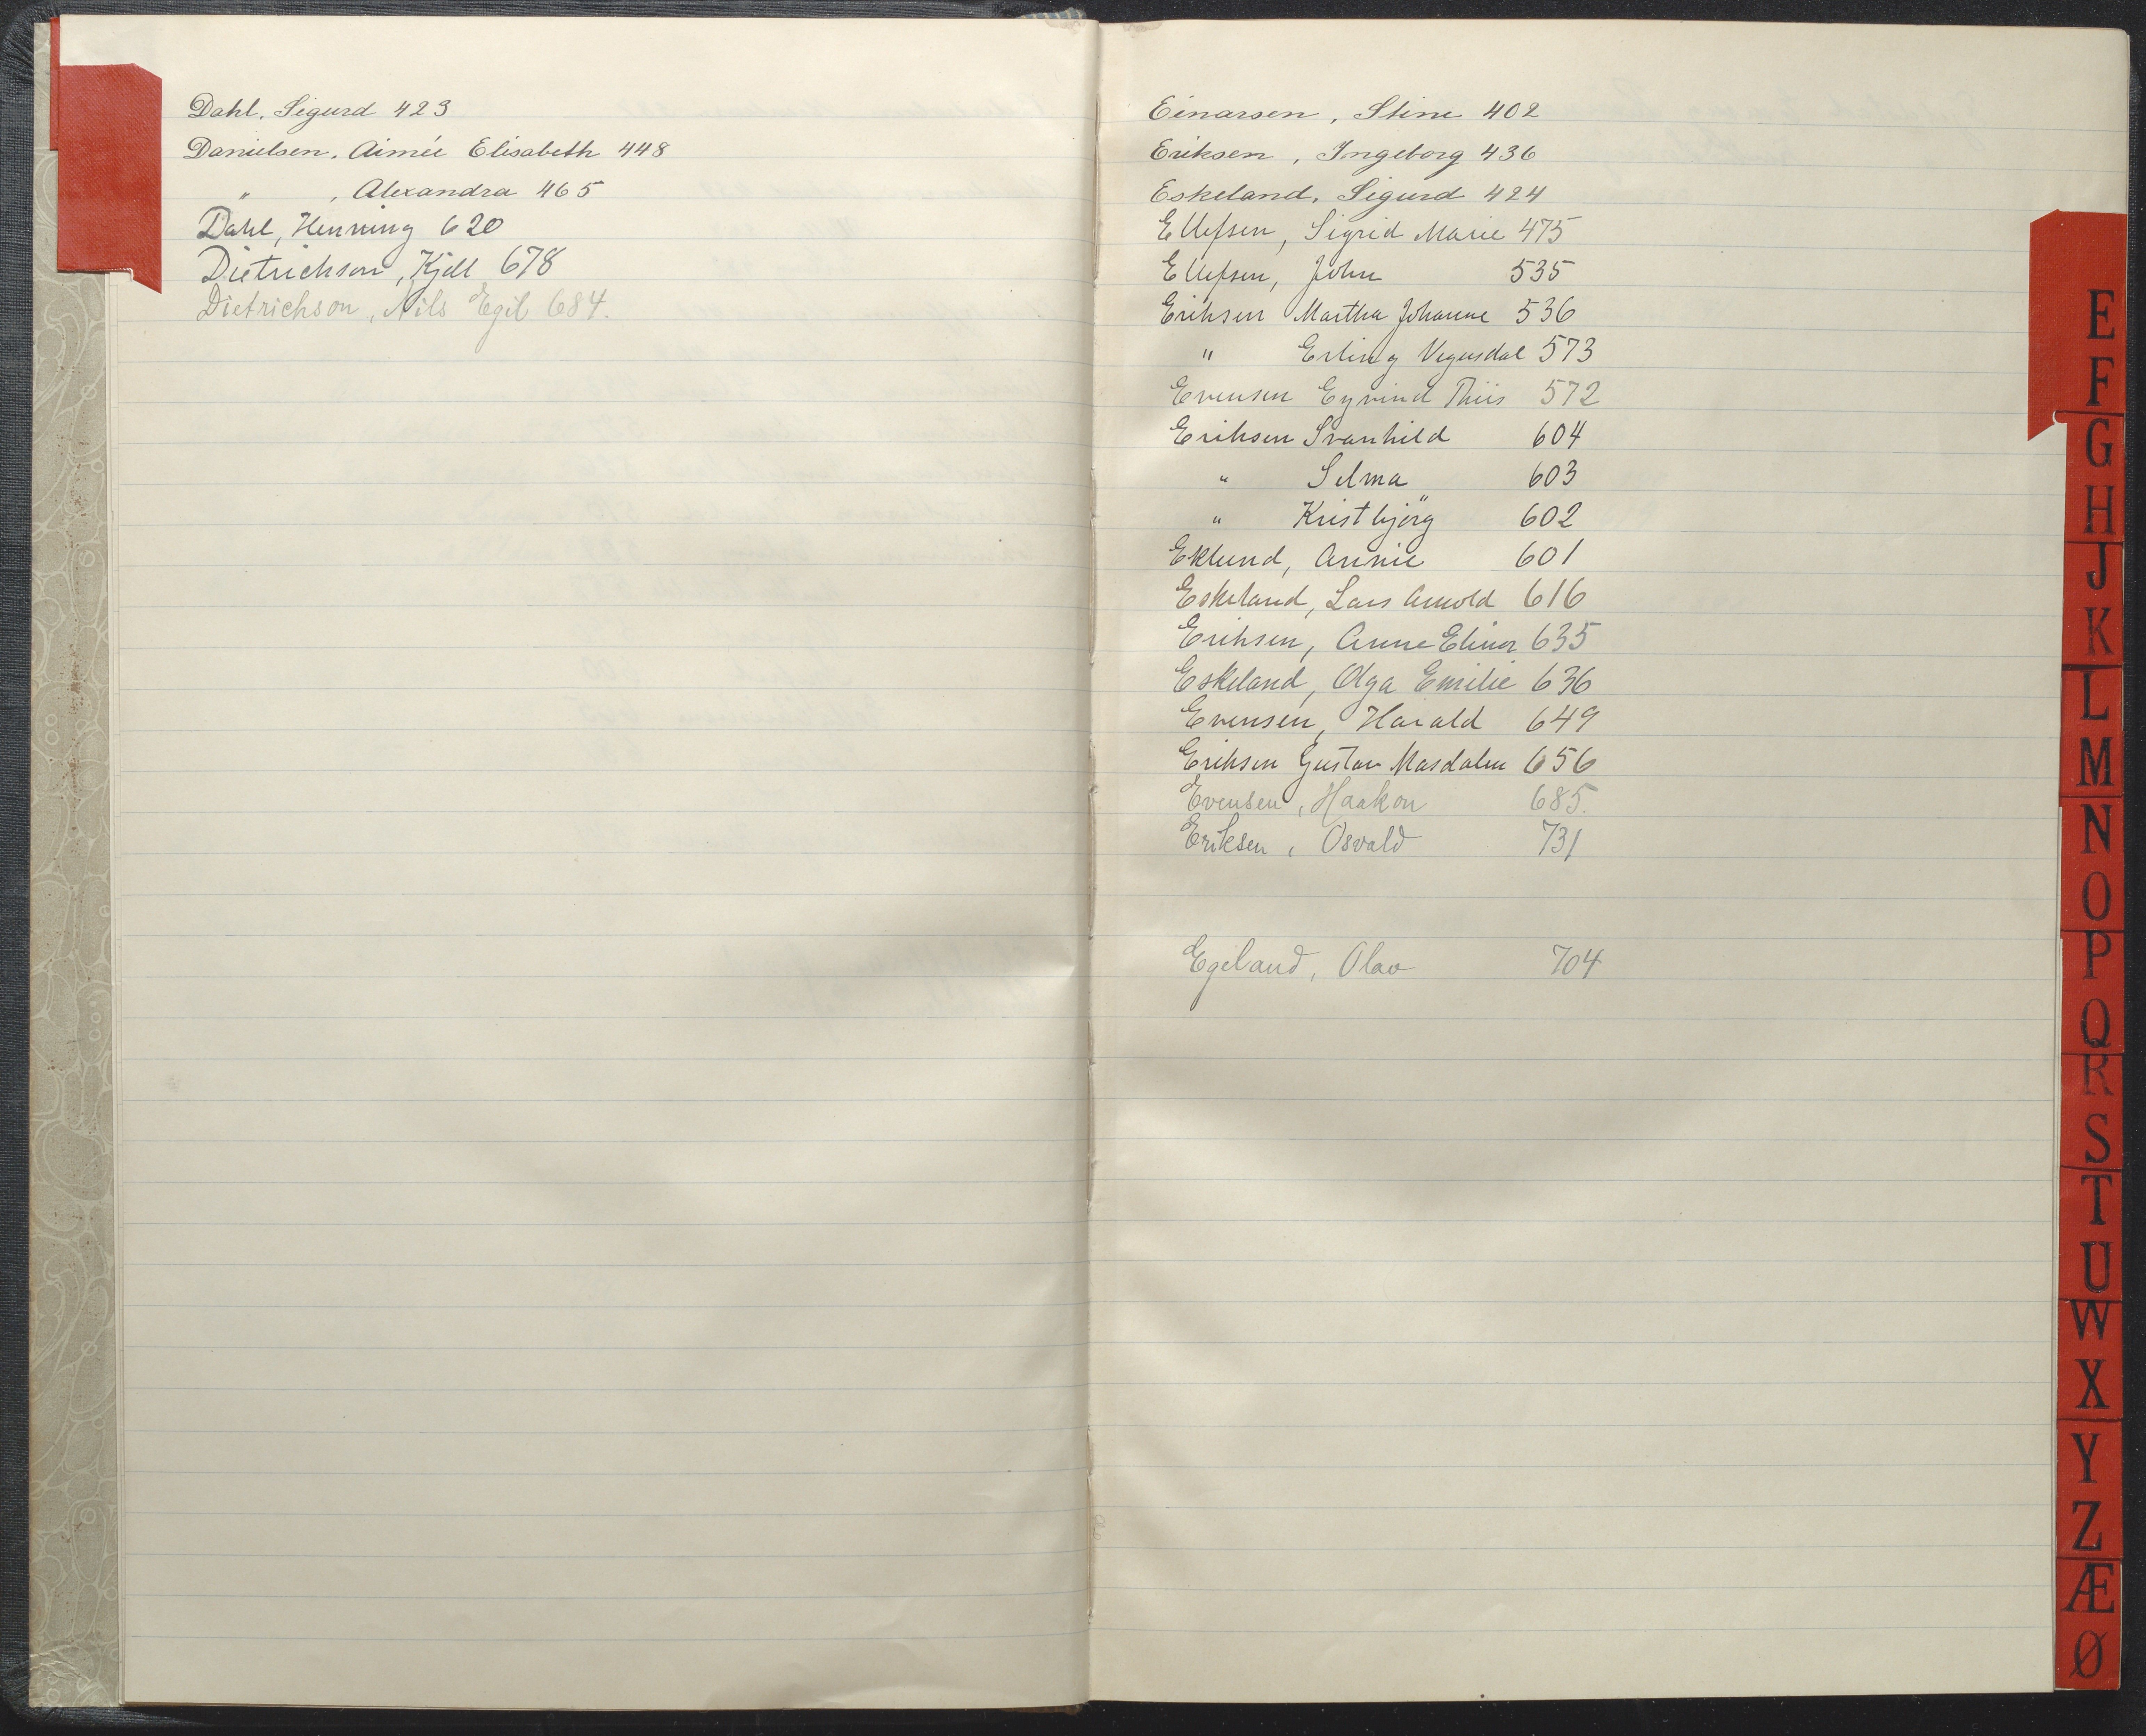 Dahl, Sigurd 423
Danielsen, Aimée Elisabeth 448
" , Alexandra 465
Dahl, Henning 620
Dietrichson, Kjell 678
Dietrichson, Nils Egil 684.
Einarsen, Stine 402
Eriksen, Ingeborg 436
Eskeland, Sigurd 424
Ellefsen, Sigrid Marie 475
Ellefsen, John 535
Eriksen Martha Johanne 536
" Erling Vegusdal 573
Evensen Eyvind Thiis 572
Eriksen Svanhild 604
" Selma 603
" Kristbjörg 602
Eklund, Annie 601
Eskeland, Lars Arnold 616
Eriksen, Anne Elinor 635
Eskeland, Olga Emilie 636
Evensen, Harald 649
Eriksen Gustav Masdalen 656
Evensen, Haakon 685.
Eriksen, Osvald 731
Egeland, Olav 704
E
F
G
H
J
K
L
M
N
O
P
Q
R
S
T
U
W
X
Y
Z
Æ
Ø